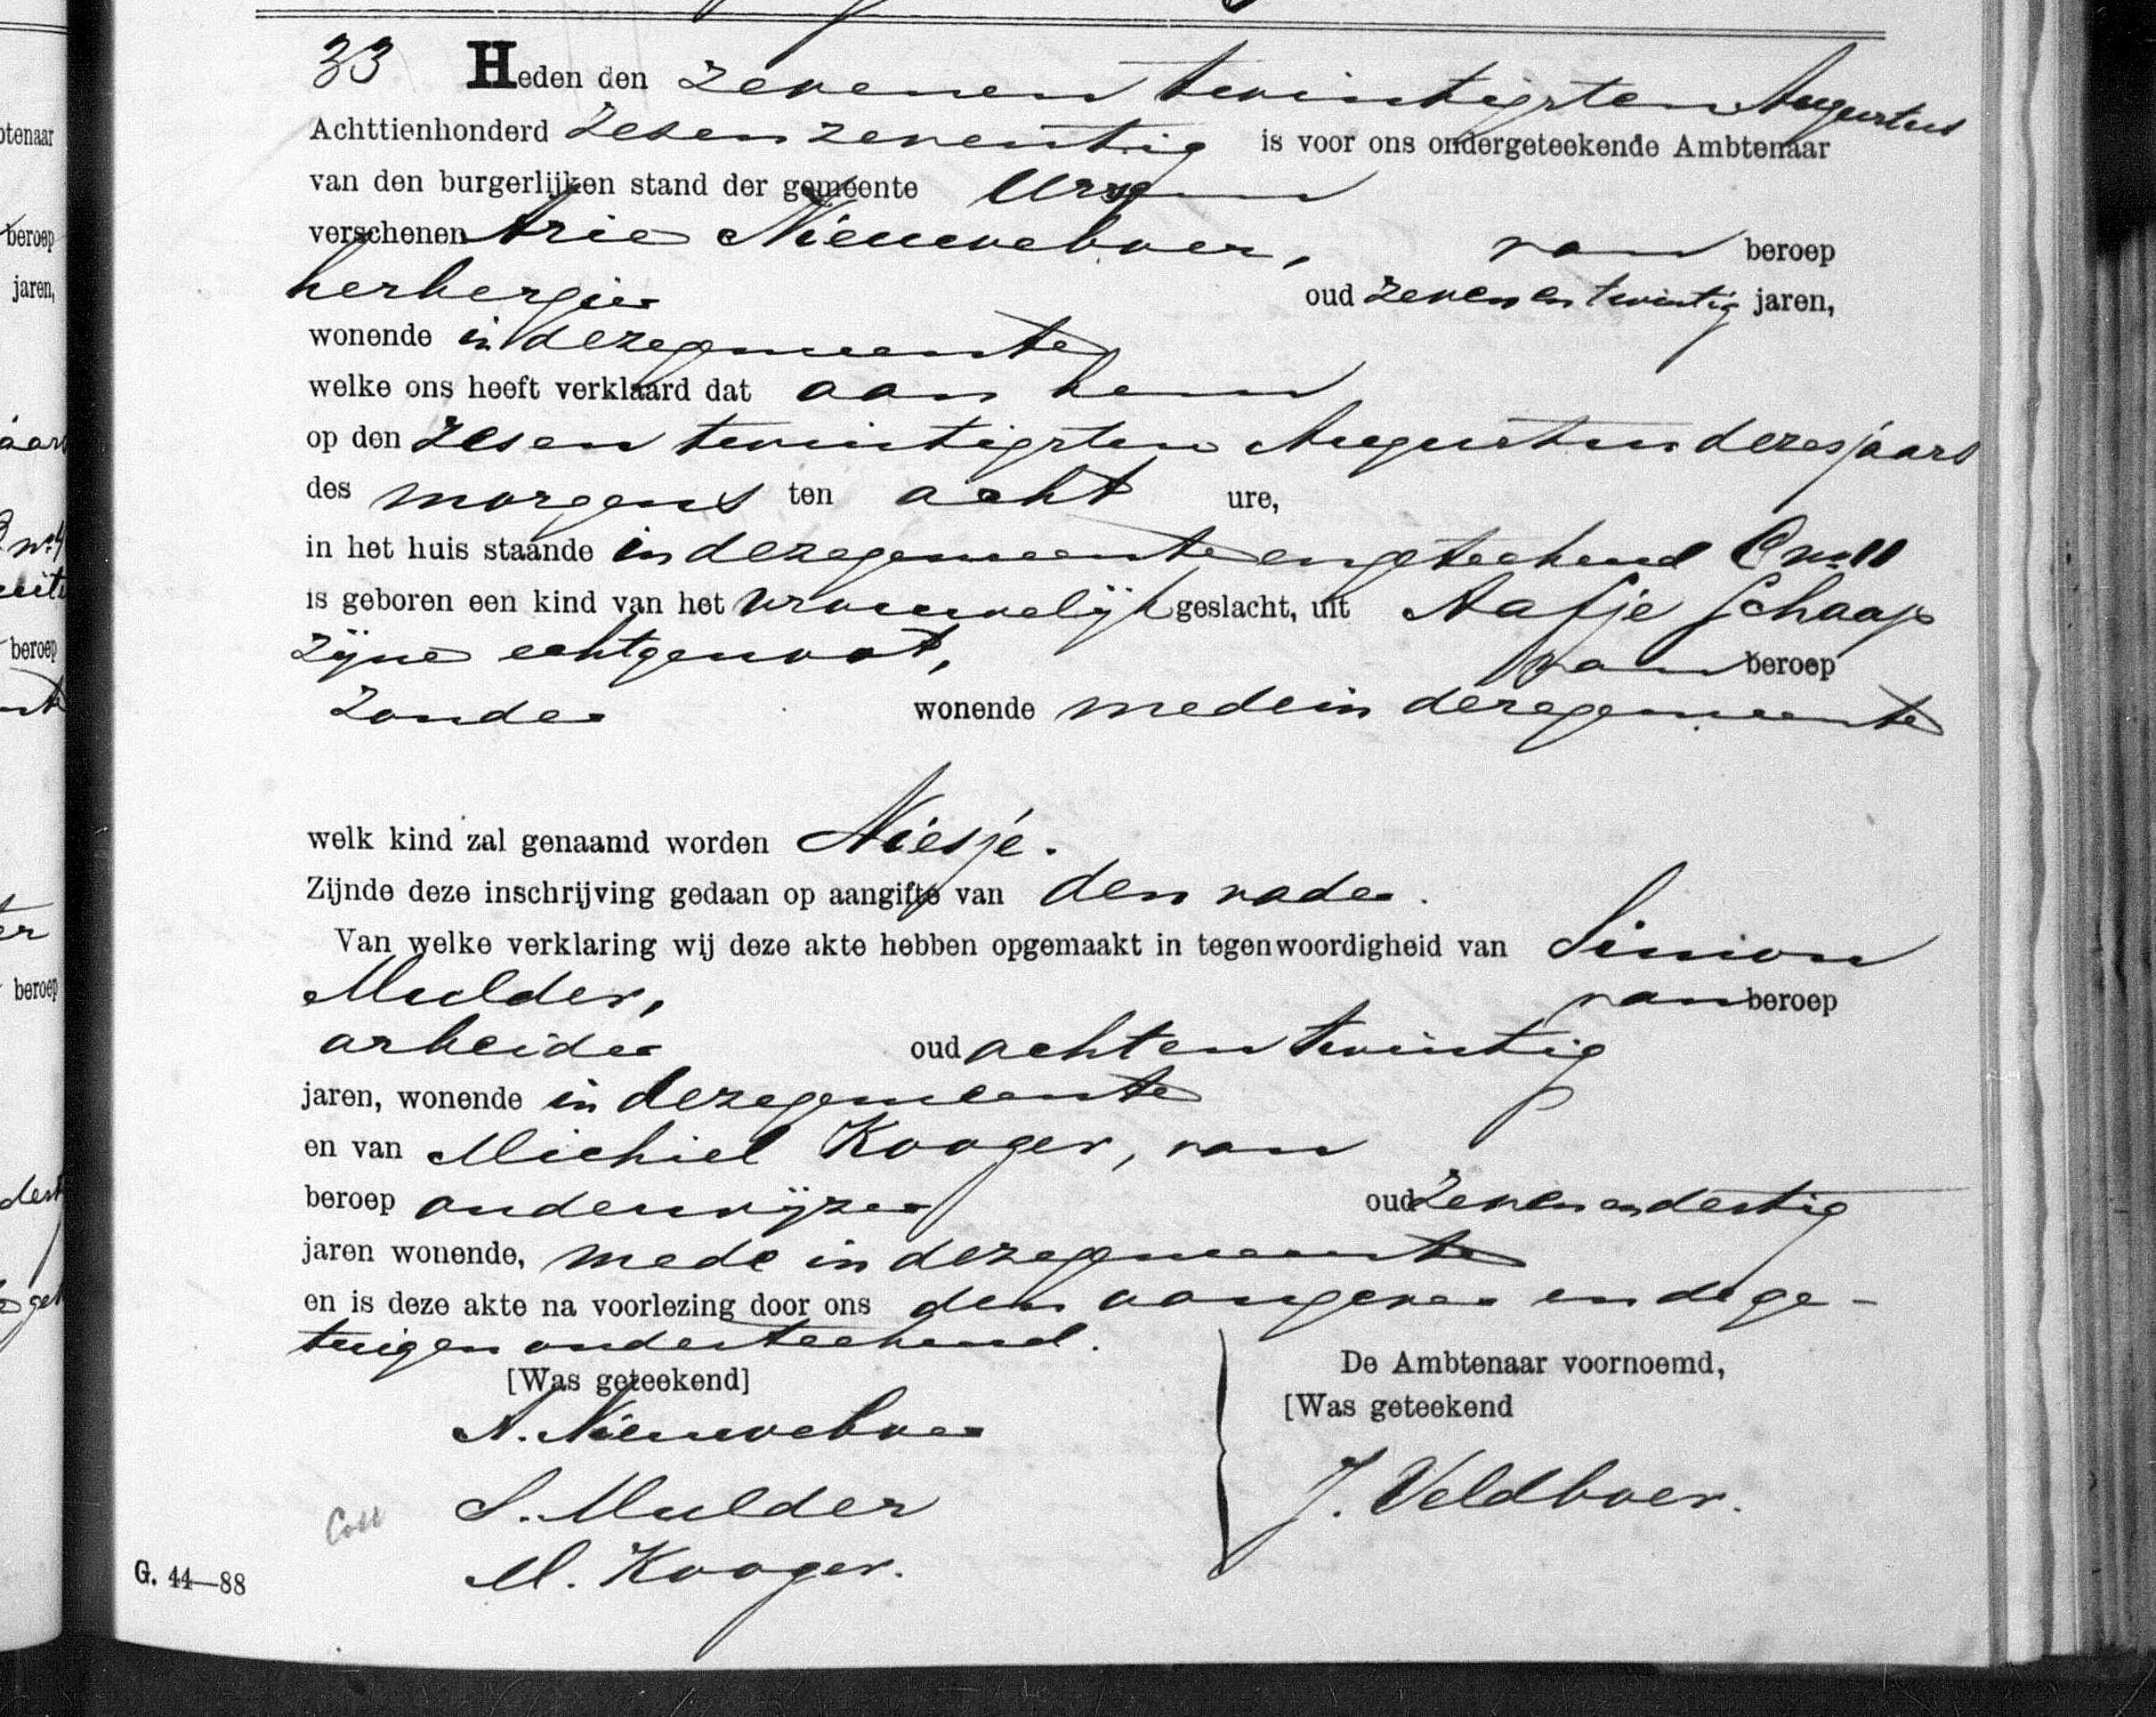 33 Heden den zevenen twintigsten Augustus
Achttienhonderd zesen zeventig is voor ons ondergeteekende Ambtenaar
van den burgerlijken stand der gemeente Ursem
verschenen Arie Nieuweboer, van beroep
herbergier oud zevenentwintig jaren,
wonende in dezegemeente
welke ons heeft verklaard dat aan hem
op den zesen twintigsten Augustus dezesjaars
des morgens ten acht ure,
in het huis staande in dezegemeente engeteekend C no 11
is geboren een kind van het vrouwelijk geslacht, uit Aafje Schaap
zijne echtgenoot, van beroep
zonder wonende medein dezegemeente
welk kind zal genaamd worden Niesje.
Zijnde deze inschrijving gedaan op aangifte van den vader.
Van welke verklaring wij deze akte hebben opgemaakt in tegenwoordigheid van Simon
Mulder, van beroep
arbeider oud achten twintig
jaren, wonende in dezegemeente
en van Michiel Kooger, van
beroep onderwijzer oud zevenendertig
jaren wonende, mede in dezegemeente
en is deze akte na voorlezing door ons den aangever en de ge-
tuigen onderteekend.
[Was geteekend] De Ambtenaar voornoemd,
[Was geteekend
A. Nieuweboer
S. Mulder J. Veldboer.
M. Kooger.
Coll
G. 44—88
btenaar
beroep
jaren,
beroep
beroep